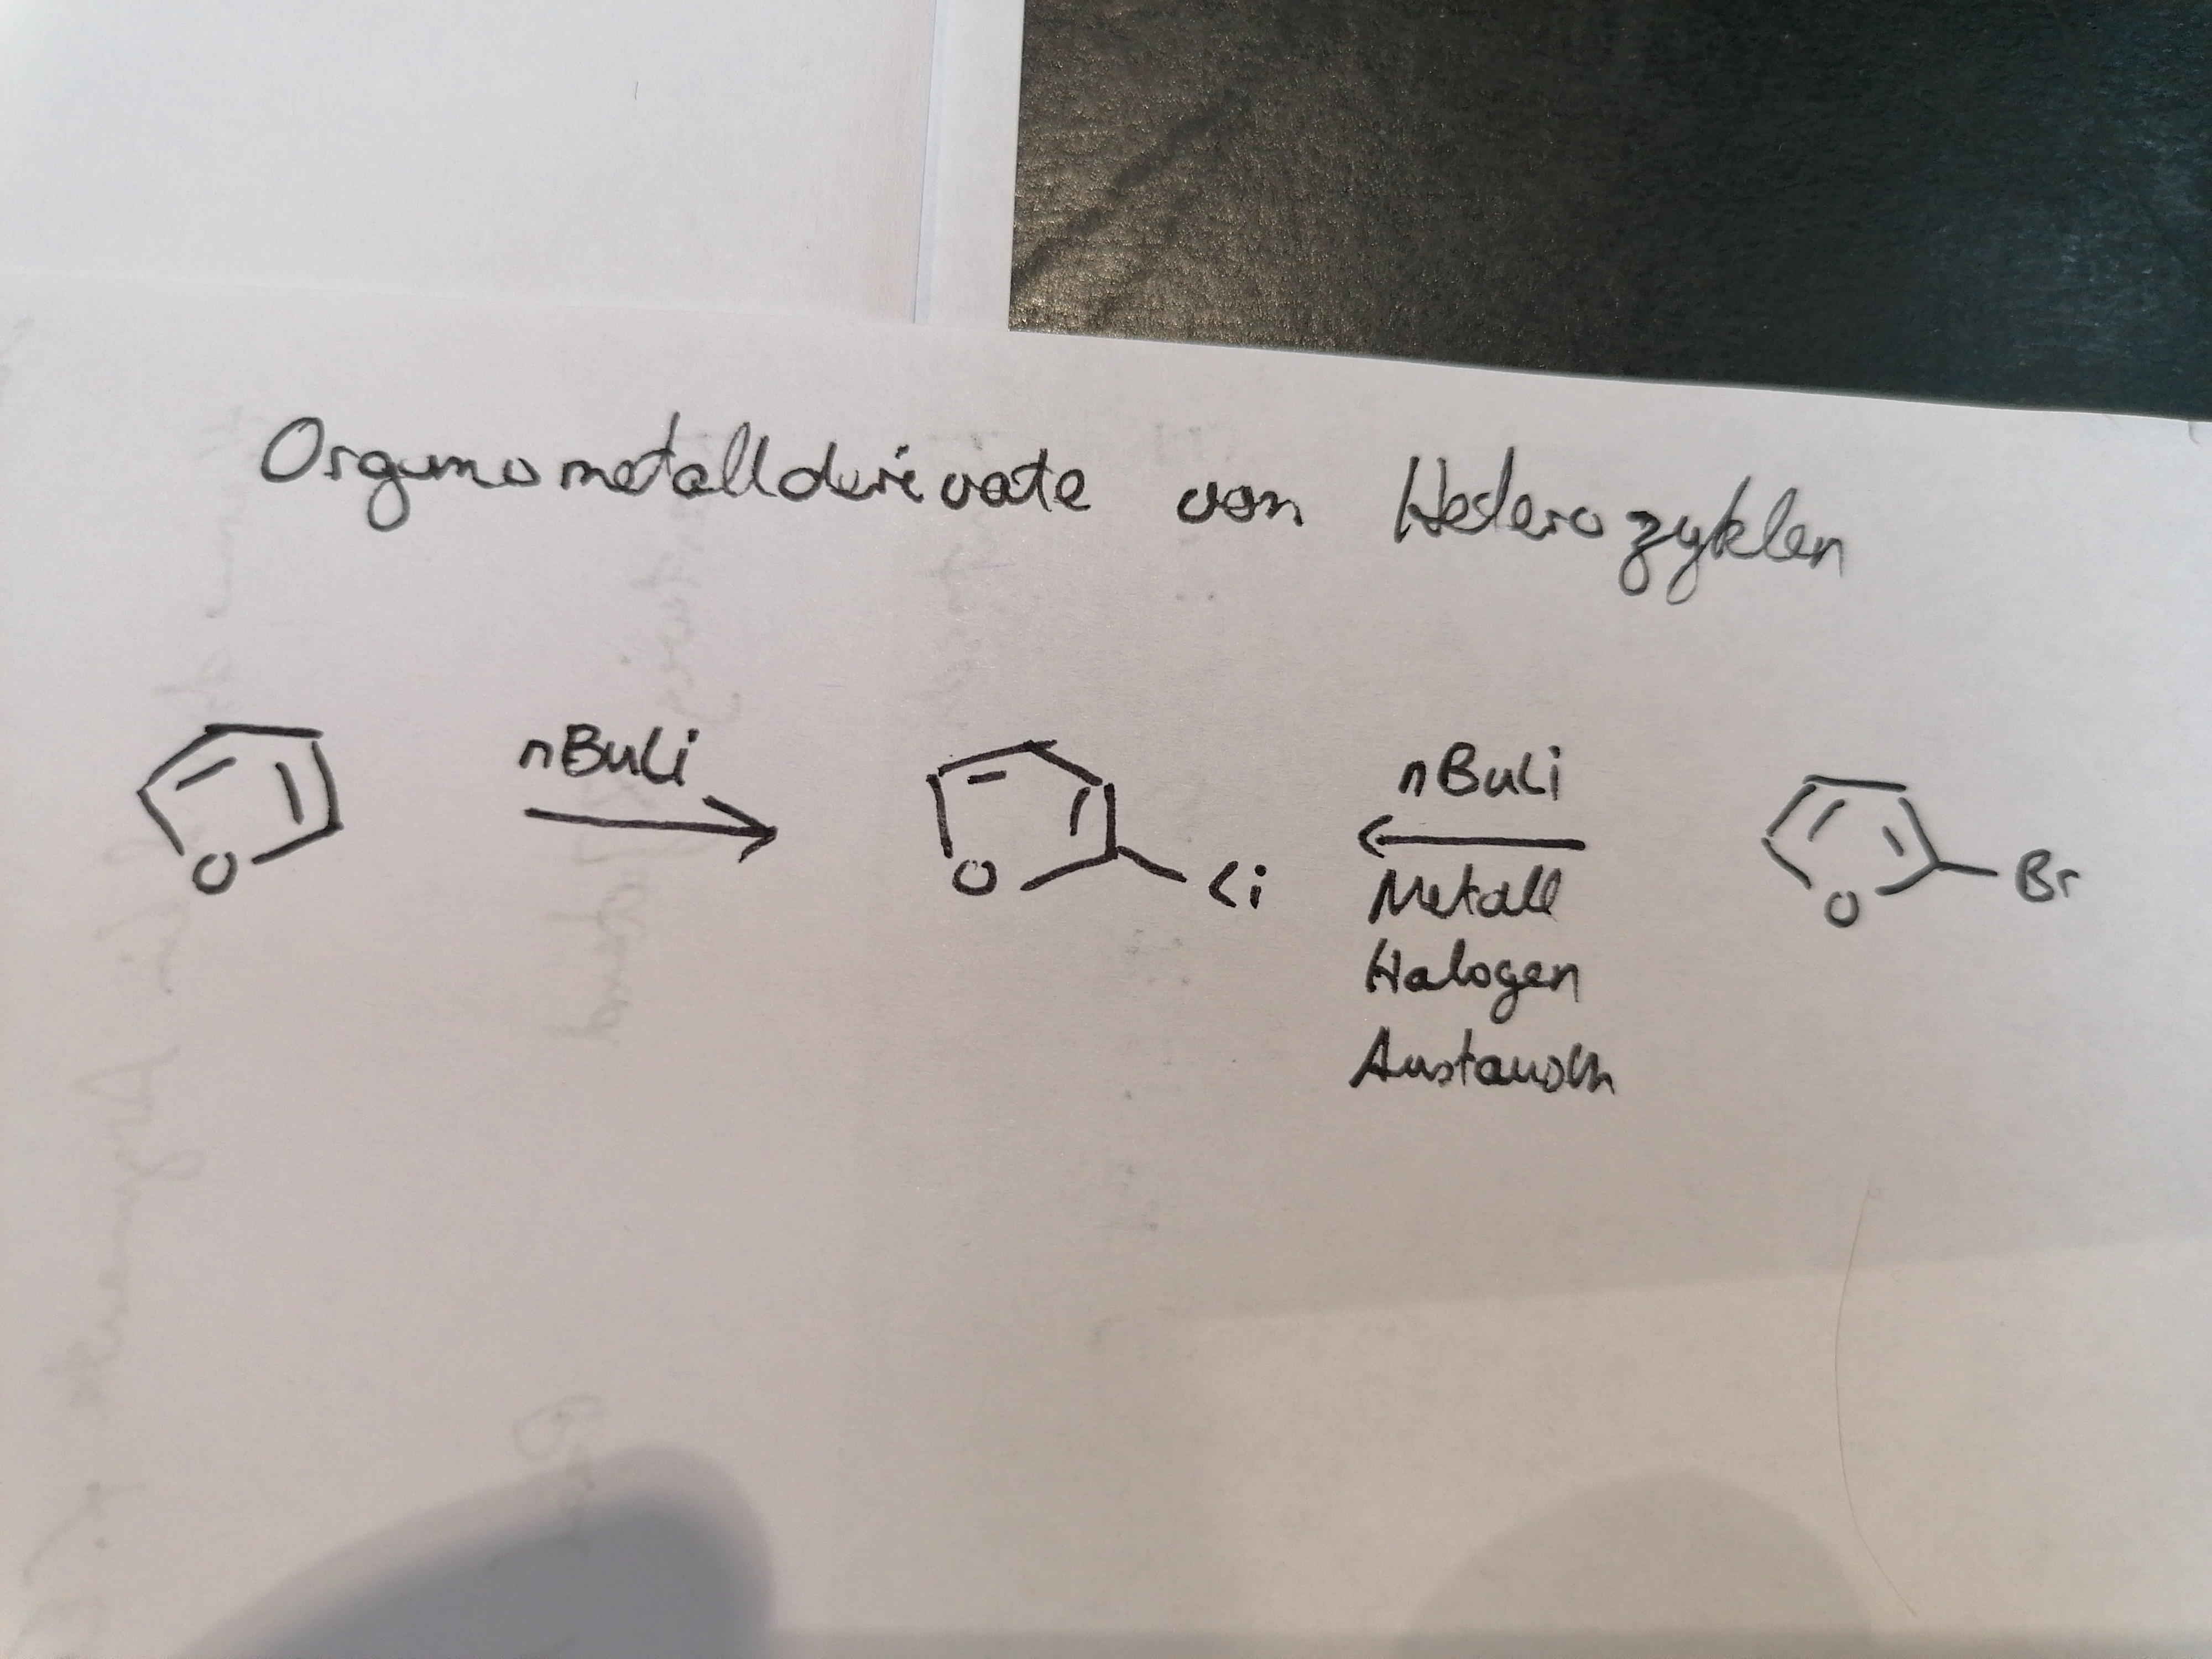 Organometallderivate von Heterozyklen
nBuLi
O
Li
O
nBuLi
Metall
Halogen
Austausch
Br
O